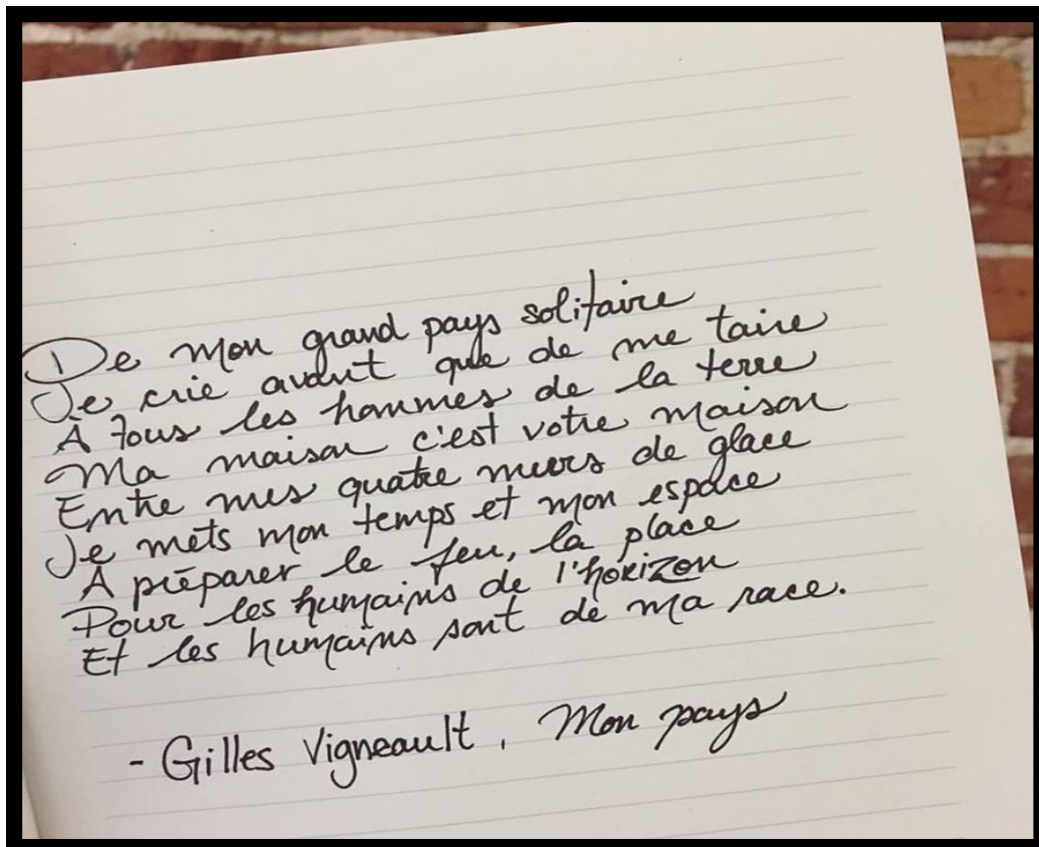 De mon grand pays solitaire
Je crie avant que de me taire
À tous les hommes de la terre
Ma maison c'est votre maison
Entre mes quatre murs de glace
Je mets mon temps et mon espace
À préparer le feu, la place
Pour les humains de l'horizon
Et les humains sont de ma race.
- Gilles Vigneault, Mon pays